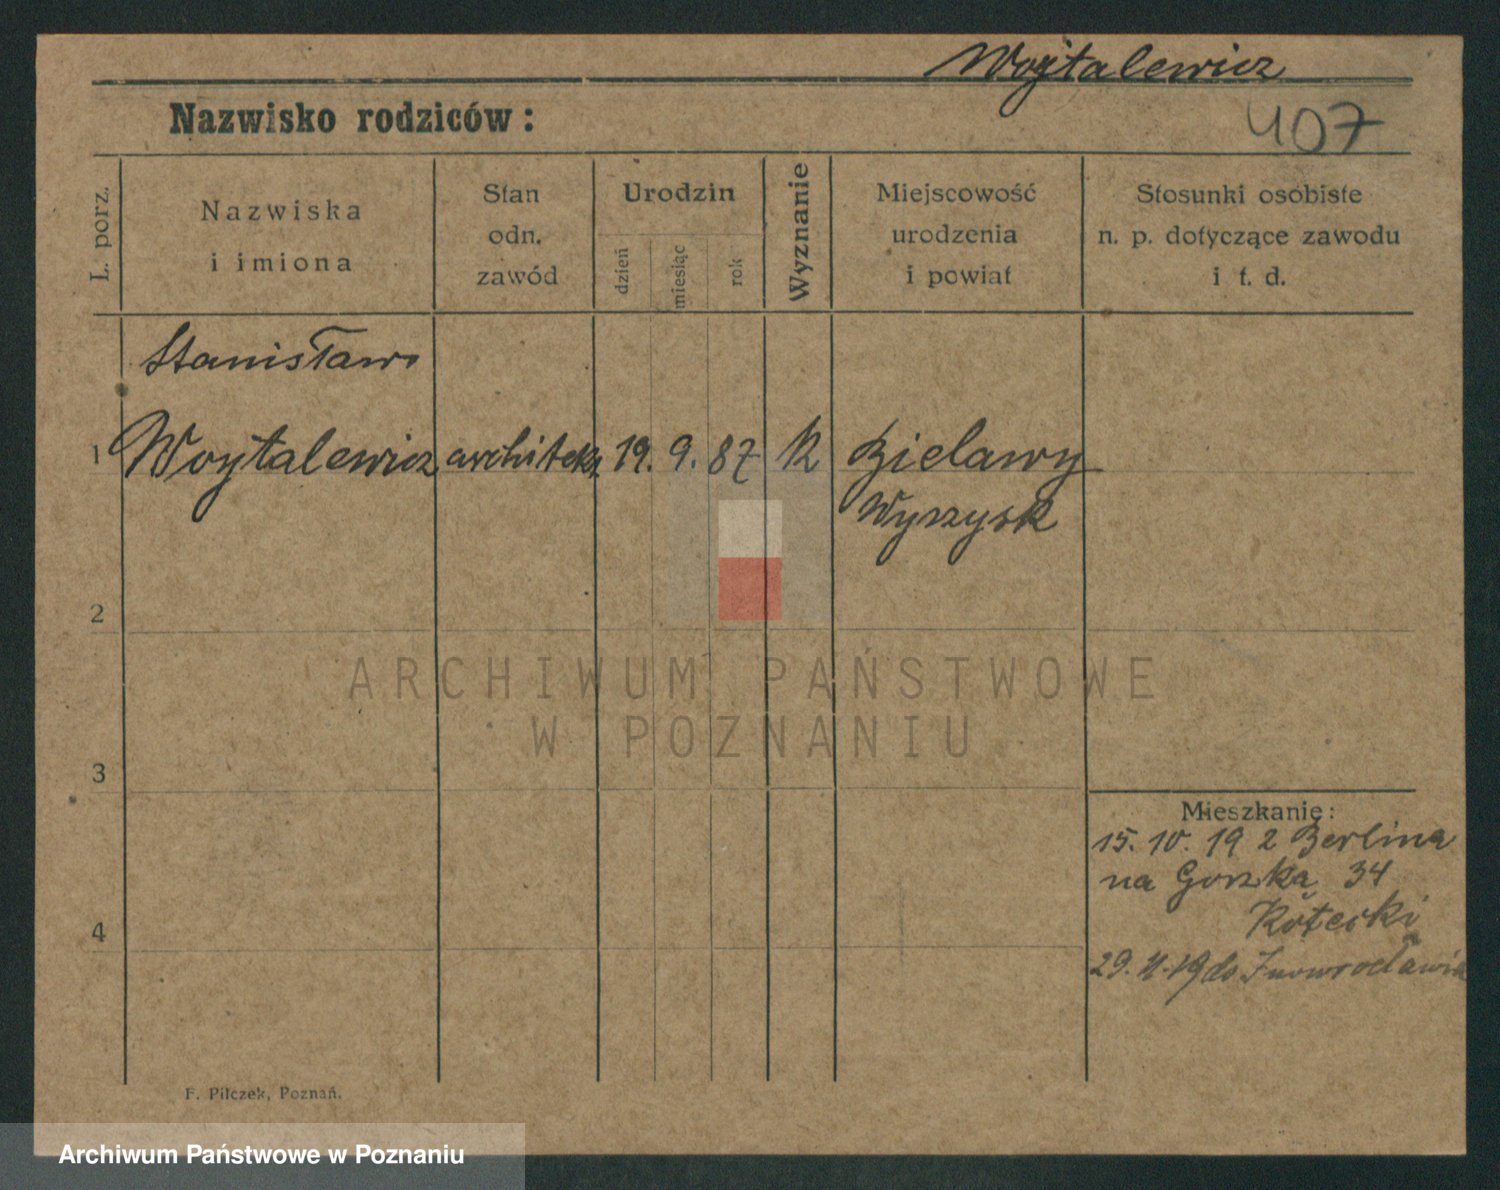 Wojtalewicz
Nazwisko rodziców:
407
L. porz.
Nazwiska
i imiona
Stan
odn.
zawód
Urodzin
dzień
miesiąc
rok
Wyznanie
Miejscowość
urodzenia
i powiat
Stosunki osobiste
n. p. dotyczące zawodu
i t. d.
Stanisław
1 Wojtalewicz architekt 19. 9. 87 K Bielawy
Wyrzysk
2
3
4
ARCHIWUM PAŃSTWOWE
W POZNANIU
Mieszkanie:
15. 10. 19 z Berlina
na Gorzka 34
29. 11. 19 do Inowrocławia
F. Pilczek, Poznań.
Archiwum Państwowe w Poznaniu